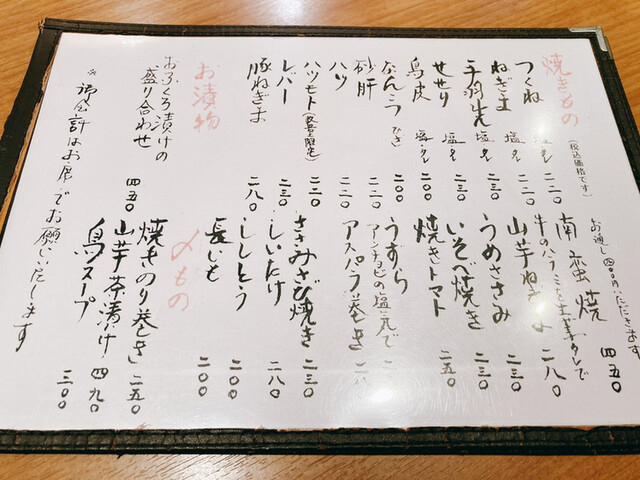 焼きもの
(税込価格です)
お通し四〇〇円いただきます
つくね 塩タレ 二二〇
ねぎま 塩タレ 二三〇
手羽先 塩 二三〇
せせり 塩タレ 二三〇
鳥皮 塩タレ 二〇〇
なんこつ ひざ 二〇〇
砂肝 二二〇
ハツ 二二〇
ハツモト(数量限定) 二二〇
レバー 二三〇
豚ねぎま 二八〇
南蛮焼 四五〇
牛のハラミと土薑タレで
山芋ねぎま 二八〇
うめささみ 二三〇
いそべ焼き 二三〇
焼きトマト 二五〇
うずら
アンチョビの塩気で
アスパラ巻き
ささみさび焼き 二三〇
しいたけ 二八〇
ししとう 二〇〇
長いも 二〇〇
お漬物
おふくろ漬けの
盛り合わせ 四五〇
〆もの
焼きのり巻き 二五〇
山芋茶漬け 四九〇
鳥スープ 三〇〇
※御会計はお席でお願い致します